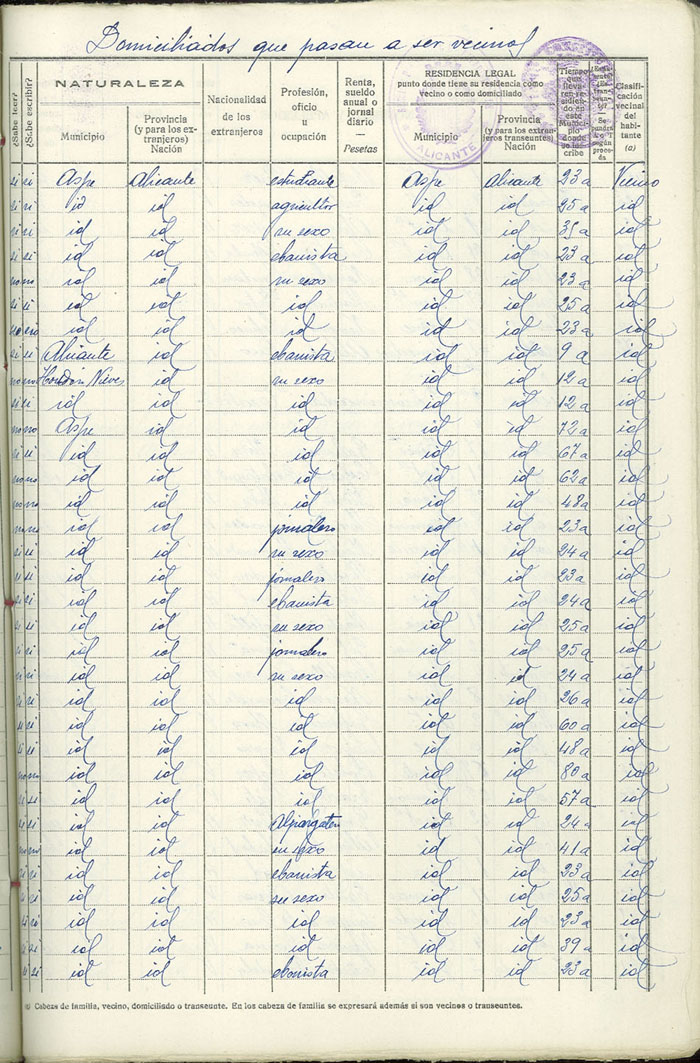 Domiciliados que pasan a ser vecinos
¿Sabe leer? ¿Sabe escribir? NATURALEZA Municipio Provincia (y para los extranjeros) Nación Nacionalidad de los extranjeros Profesión, oficio u ocupación Renta, sueldo anual o jornal diario — Pesetas RESIDENCIA LEGAL punto donde tiene su residencia como vecino o como domiciliado Municipio Provincia (y para los extranjeros transeuntes) Nación Tiempo que lleva residiendo en este Municipio donde se inscribe Clasificación vecinal del habitante (a)
ALICANTE
si si Aspe Alicante estudiante Aspe Alicante 23 a Vecino
si si id id agricultor id id 25 a id
si si id id su sexo id id 35 a id
si si id id ebanista id id 23 a id
no no id id su sexo id id 23 a id
si si id id id id id 25 a id
no no id id id id id 23 a id
si si Alicante id ebanista id id 9 a id
no no Hondón Nieves id su sexo id id 12 a id
si si id id id id id 12 a id
no no Aspe id id id id 72 a id
si si id id id id id 67 a id
no no id id id id id 62 a id
no no id id id id id 48 a id
no no id id jornalero id id 23 a id
si si id id su sexo id id 24 a id
si si id id jornalero id id 23 a id
si si id id ebanista id id 24 a id
si si id id su sexo id id 25 a id
si si id id jornalero id id 25 a id
si si id id su sexo id id 24 a id
si si id id id id id 26 a id
si si id id id id id 60 a id
si si id id id id id 48 a id
no no id id id id id 80 a id
si si id id id id id 57 a id
si si id id Alpargatero id id 24 a id
no no id id su sexo id id 41 a id
si si id id ebanista id id 23 a id
si si id id su sexo id id 25 a id
si si id id id id id 23 a id
si si id id id id id 39 a id
si si id id ebanista id id 23 a id
(a) Cabeza de familia, vecino, domiciliado o transeunte. En los cabeza de familia se expresará además si son vecinos o transeuntes.